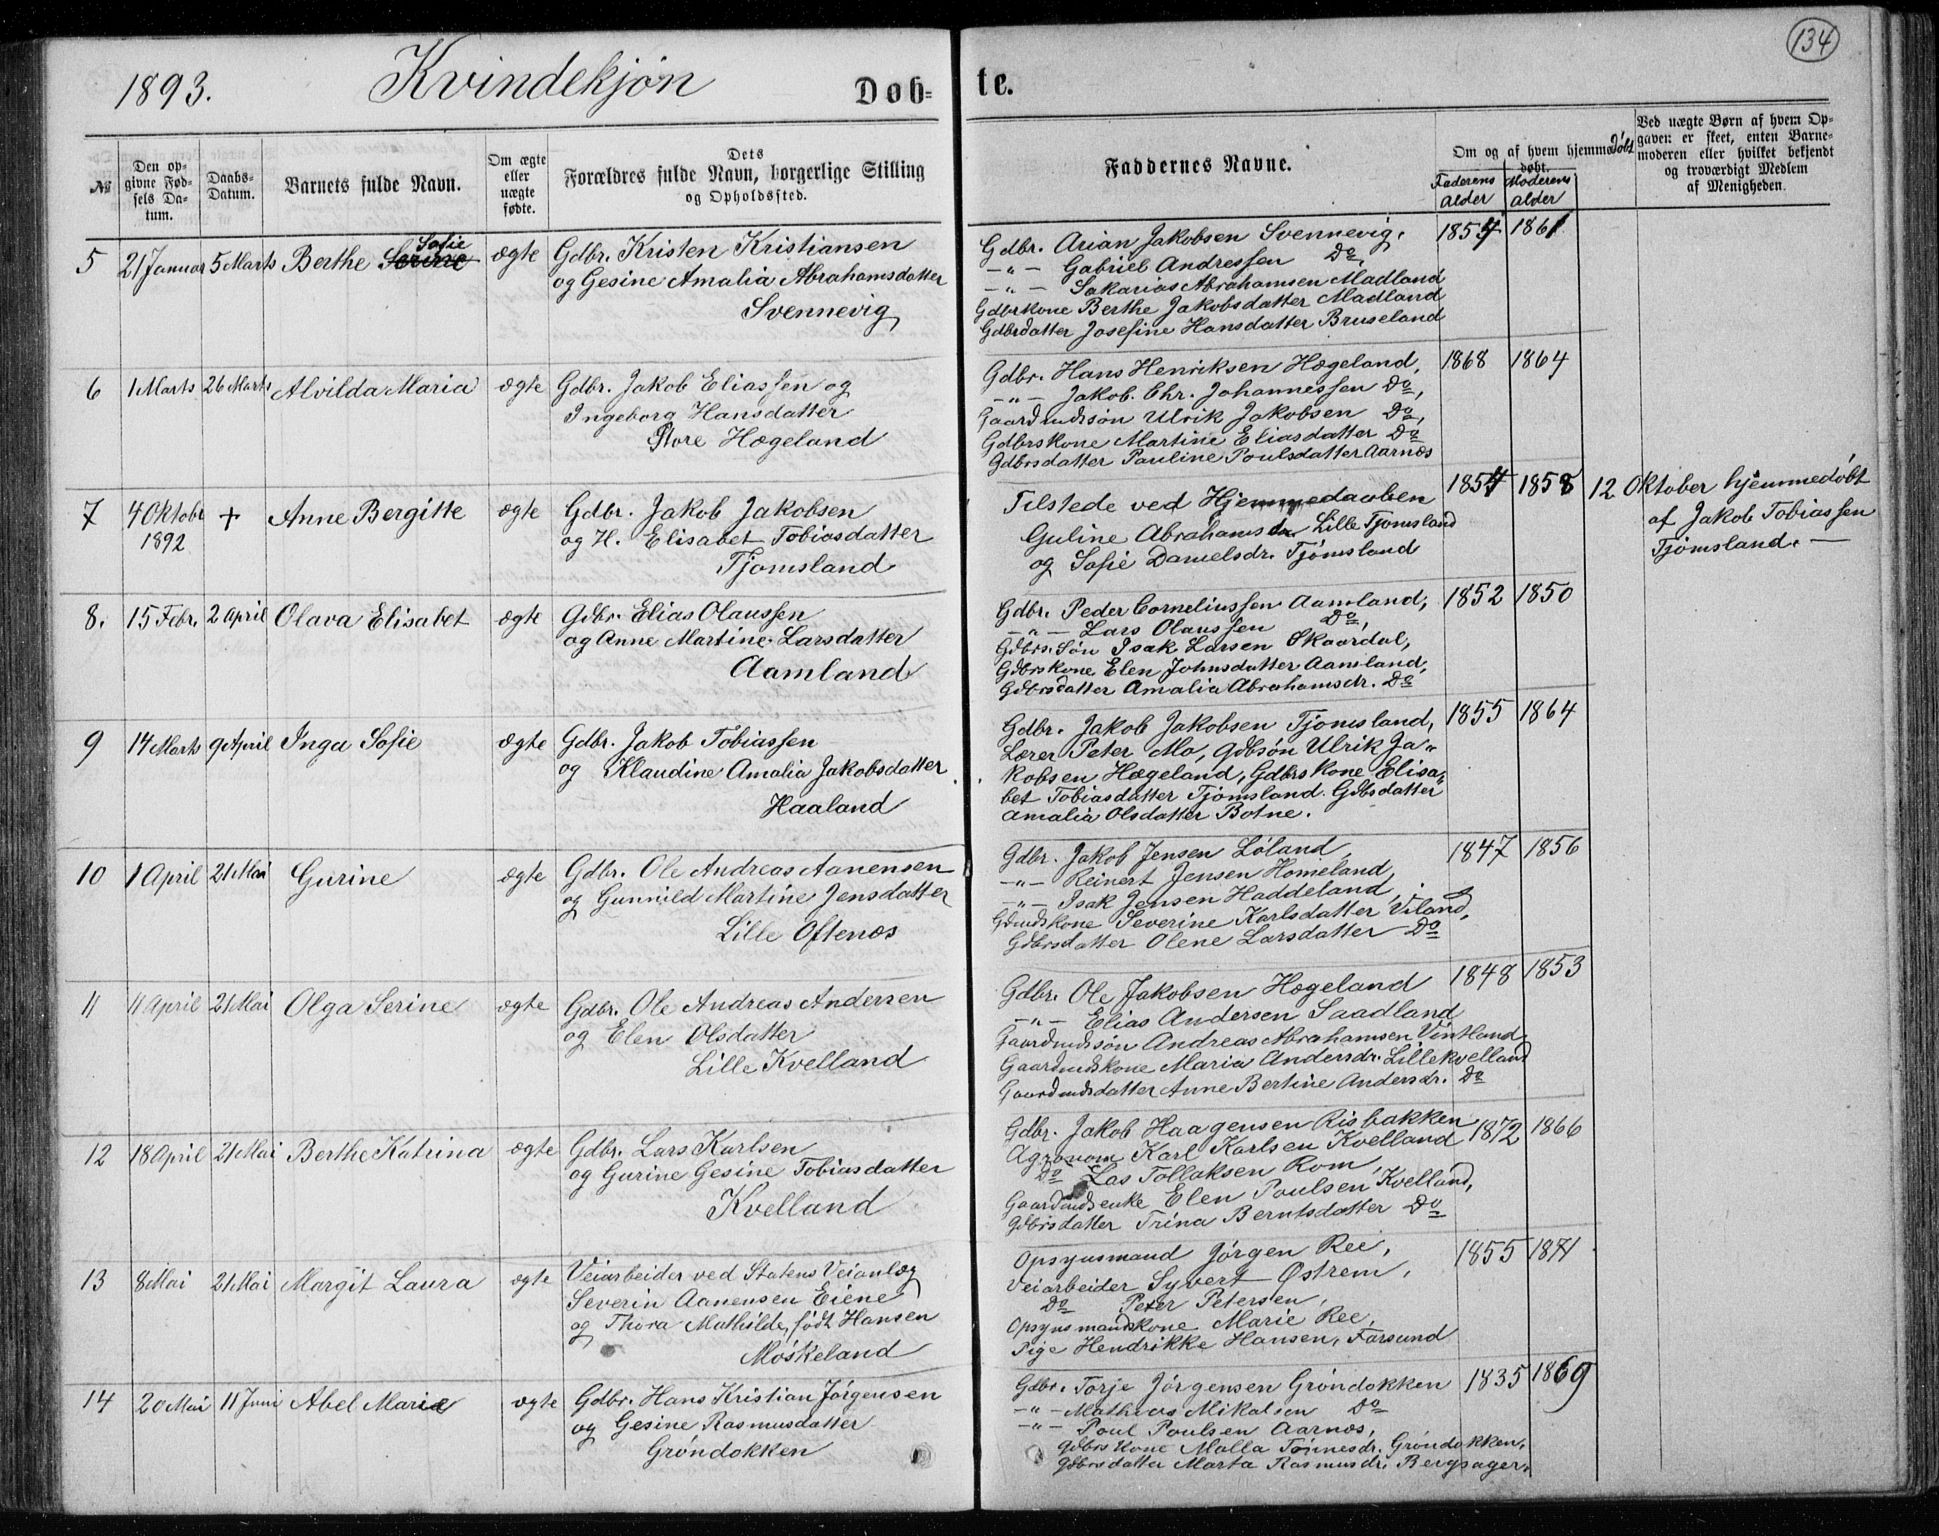 134
1893. Kvindekjøn Døb= te.
№
Den op-
givne Fød-
sels Da-
tum.
Daabs-
Datum.
Barnets fulde Navn.
Om ægte
eller
nægte
fødte.
Dets
Forældres fulde Navn, borgerlige Stilling
og Opholdssted.
Faddernes Navne.
Om og af hvem hjemmedøbt
døbt.
Faderens Alder
Moderens Alder
Ved nægte Børn af hvem Op-
gaven er skeet, enten Barne-
moderen eller hvilket bekjendt
og troværdigt Medlem
af Menigheden.
5 21 Januar 5 Marts Berthe Serine Sofie ægte
Gdbr. Kristen Kristiansen
og Gesine Amalia Abrahamsdatter
Svennevig
Gdbr. Arian Jakobsen Svennevig, 1854 1861
-"- Gabriel Andressen Do,
-"- Sakarias Abrahamsen Madland
Gdbrkone Berthe Jakobsdatter Madland
Gdbrdatter Josefine Hansdatter Bruseland
6 1 Marts 26 Marts Alvilda Maria ægte
Gdbr. Jakob Eliassen og
Ingeborg Hansdatter
Store Hægeland
Gdbr. Hans Henriksen Hægeland, 1868 1864
-"- Jakob Chr. Johannessen Do,
Gaardmdssøn Ulrik Jakobsen Do,
Gdbrskone Martine Eliasdatter Do
Gdbrsdatter Pauline Poulsdatter Aarnes
7 4 Oktobr 1892 + Anne Bergitte ægte
Gdbr. Jakob Jakobsen
og H. Elisabet Tobiasdatter
Tjomsland
Tilstede ved Hjemmedaaben 1854 1858
Guline Abrahamsdr Lille Tjomsland
og Sofie Danielsdr. Tjømsland
12 Oktober hjemmedøbt
af Jakob Tobiassen
Tjømsland. —
8. 15 Febr. 2 April Olava Elisabet ægte
Gdbr. Elias Olaussen
og Anne Martine Larsdatter
Aamland
Gdbr. Peder Corneliussen Aamland, 1852 1850
-"- Lars Olaussen Do,
Gdbrs. Søn Isak Larsen Skaardal,
Gdbrskone Elen Johnsdatter Aamland,
Gdbrsdatter Amalia Abrahamsdr. Do
9 14 Marts 9 April Inga Sofie ægte
Gdbr. Jakob Tobiassen
og Klaudine Amalia Jakobsdatter
Haaland
Gdbr. Jakob Jakobsen Tjomsland, 1855 1864
Lærer Peter Mo, Gdbsøn Ulrik Ja-
kobsen Hægeland, Gdbrskone Elisa-
bet Tobiasdatter Tjømsland. Gdbsdatter
Amalia Olsdatter Botne.
10 1 April 21 Mai Gurine ægte
Gdbr. Ole Andreas Aanensen
og Gunnild Martine Jensdatter
Lille Oftenes
Gdbr. Jakob Jensen Løland, 1847 1856
-"- Reinert Jensen Homeland,
-"- Isak Jensen Haddeland,
Gdmdskone Severine Karlsdatter Viland,
Gdbrsdatter Olene Larsdatter Do
11 11 April 21 Mai Olga Serine ægte
Gdbr. Ole Andreas Andersen
og Elen Olsdatter
Lille Kvelland
Gdbr. Ole Jakobsen Hægeland 1848 1853
-"- Elias Andersen Saadland
Gaardmdssøn Andreas Abrahamsen Vintland
Gaardmdskone Maria Andersdr. Lillekvelland
Gaardmdsdatter Anne Bertine Andersdr. Do
12 18 April 21 Mai Berthe Katrina ægte
Gdbr. Lars Karlsen
og Gurine Gesine Tobiasdatter
Kvelland
Gdbr. Jakob Haagensen Risbakken 1872 1866
Agronom Karl Karlsen Kvelland
Do Las Tollaksen Rom,
Gaardmdsenke Elen Poulsen Kvelland,
Gdbrsdatter Trina Berntsdatter Do
13 8 Mai 21 Mai Margit Laura ægte
Veiarbeider ved Statens Veianlæg
Severin Aanensen Eiene
og Thora Mathilde, født Hansen
Møskeland
Opsynsmand Jørgen Ree, 1855 1871
Veiarbeider Syvert Østrem,
Do Peter Petersen,
Opsynsmandskone Marie Ree,
Pige Hendrikke Hansen, Farsund
14 20 Mai 11 Juni Abel Marie ægte
Gdbr. Hans Kristian Jørgensen
og Gesine Rasmusdatter
Grøndokken
Gdbr. Torje Jørgensen Grøndokken 1835 1869
-"- Mathias Mikalsen Do
-"- Poul Poulsen Aarnes,
Gdbrs Kone Malla Tønnesdr. Grøndokken,
Gdbrsdatter Marta Rasmusdr. Bergsager.